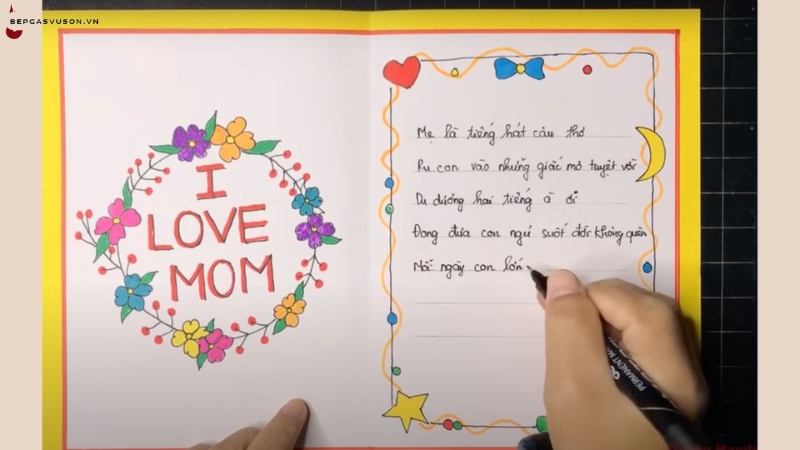 BEPGASVUSON.VN
I
LOVE
MOM
Mẹ là tiếng hát câu thơ
Ru con vào những giấc mơ tuyệt vời
Du dương hai tiếng à ơi
Đong đưa con ngủ suốt đời không quên
Mỗi ngày con lớn
PERMANENT